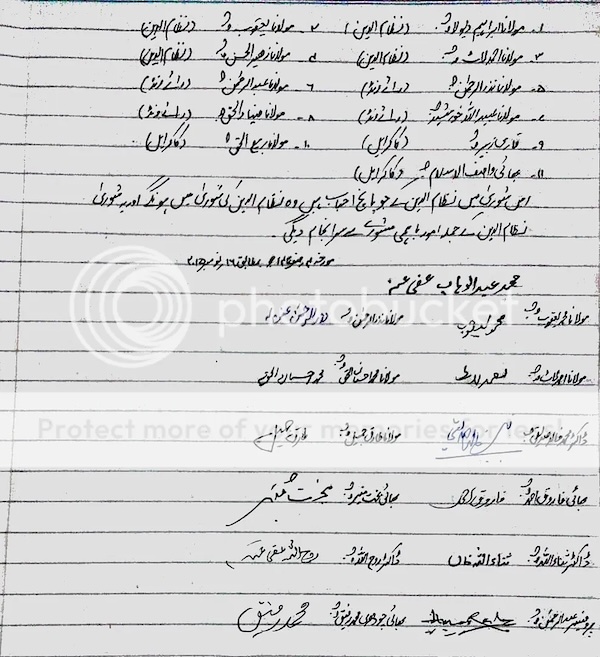 ۱۔ مولانا ابراہیم دیولہ صاحب (نظام الدین) ۲۔ مولانا یعقوب صاحب (نظام الدین)
۳۔ مولانا احمد لاٹ صاحب (نظام الدین) ۴۔ مولانا زہیر الحسن صاحب (نظام الدین)
۵۔ مولانا نذر الرحمٰن صاحب (رائے ونڈ) ۶۔ مولانا عبد الرحمٰن صاحب (رائے ونڈ)
۷۔ مولانا عبید اللہ خورشید صاحب (رائے ونڈ) ۸۔ مولانا ضیاء الحق صاحب (رائے ونڈ)
۹۔ قاری زبیر صاحب (کاکرایل) ۱۰۔ مولانا ربیع الحق صاحب (کاکرایل)
۱۱۔ بھائی واصف الاسلام صاحب (کاکرایل)
اس شوریٰ میں نظام الدین کے جو پانچ احباب ہیں وہ نظام الدین کی شوریٰ میں ہونگے اور یہ شوریٰ
نظام الدین کے جملہ امور باہمی مشورے سے سرانجام دیگی۔
مطابق ۱۶ نومبر ۲۰۱۵
محمد عبد الوہاب عفی عنہ
مولانا محمد یعقوب صاحب محمد یعقوب مولانا نذر الرحمٰن صاحب نذر الرحمٰن عفی عنہ
مولانا احمد لاٹ صاحب احمد لاٹ مولانا محمد احسان الحق صاحب محمد احسان الحق
ڈاکٹر محمد خالد صدیقی صاحب مولانا طارق جمیل صاحب طارق جمیل
بھائی فاروق احمد صاحب فاروق احمد بھائی بخت منیر صاحب بخت منیر
ڈاکٹر ثناء اللہ صاحب ثناء اللہ خان ڈاکٹر روح اللہ صاحب روح اللہ عفی عنہ
پروفیسر عبد الرحمٰن صاحب بھائی چوہدری محمد رفیق صاحب محمد رفیق
photobucket
Protect more of your memories for less!